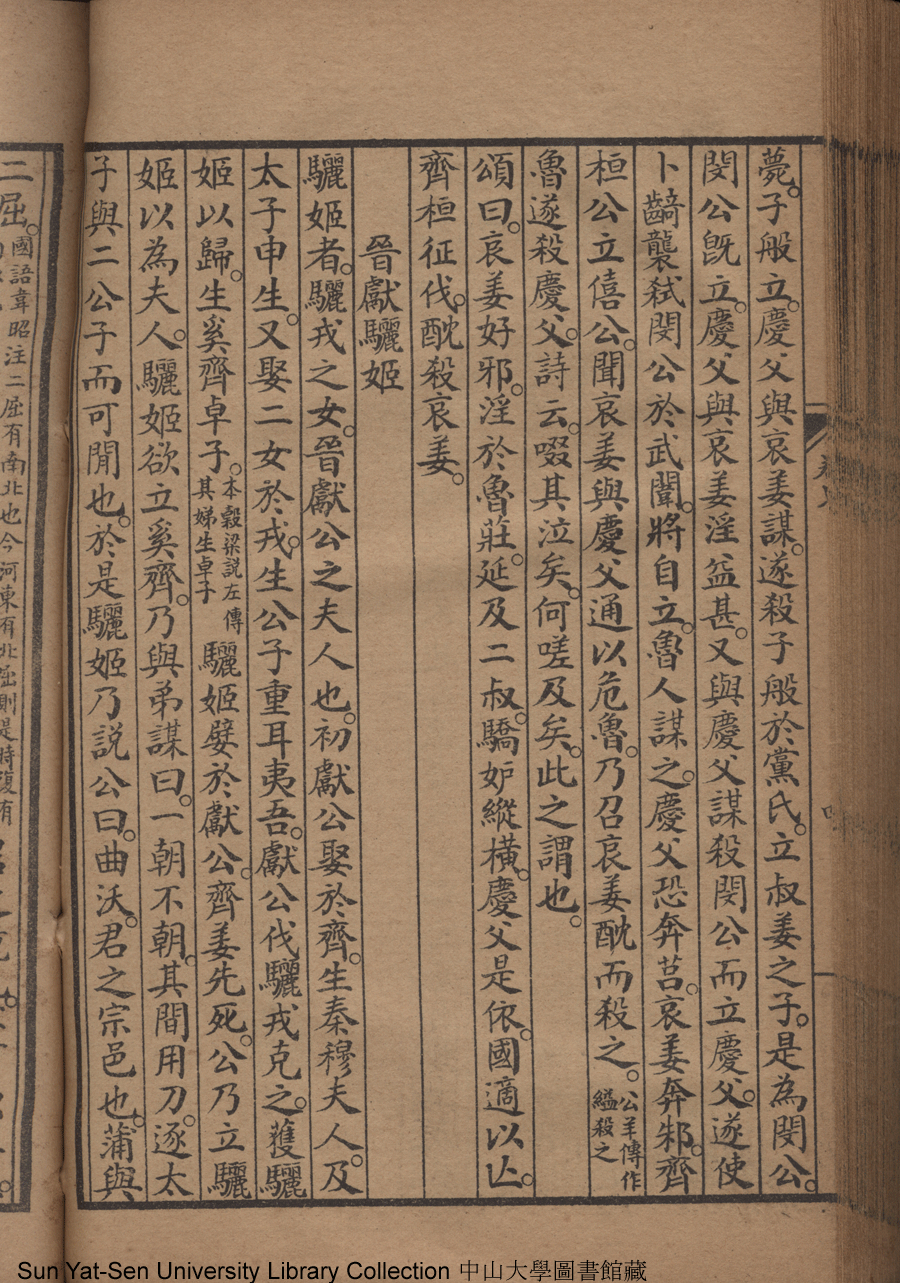 薨。子般立。慶父與哀姜謀。遂殺子般於黨氏。立叔姜之子。是為閔公。
閔公旣立。慶父與哀姜淫益甚。又與慶父謀殺閔公而立慶父。遂使
卜齮襲弒閔公於武闈。將自立。魯人謀之。慶父恐奔莒。哀姜奔邾。齊
桓公立僖公。聞哀姜與慶父通以危魯。乃召哀姜酖而殺之。公羊傳作縊殺之
魯遂殺慶父。詩云。啜其泣矣。何嗟及矣。此之謂也。
頌曰。哀姜好邪。淫於魯莊。延及二叔。驕妒縱橫。慶父是依。國適以亾。
齊桓征伐。酖殺哀姜。
晉獻驪姬
驪姬者。驪戎之女。晉獻公之夫人也。初獻公娶於齊。生秦穆夫人。及
太子申生。又娶二女於戎。生公子重耳夷吾。獻公伐驪戎克之。獲驪
姬以歸。生奚齊卓子。本穀梁說左傳其娣生卓子驪姬嬖於獻公。齊姜先死。公乃立驪
姬以為夫人。驪姬欲立奚齊。乃與弟謀曰。一朝不朝。其間用刀。逐太
子與二公子而可閒也。於是驪姬乃說公曰。曲沃。君之宗邑也。蒲與
二屈。國語韋昭注二屈有南北也今河東有北屈則是時復有
Sun Yat-Sen University Library Collection 中山大學圖書館藏